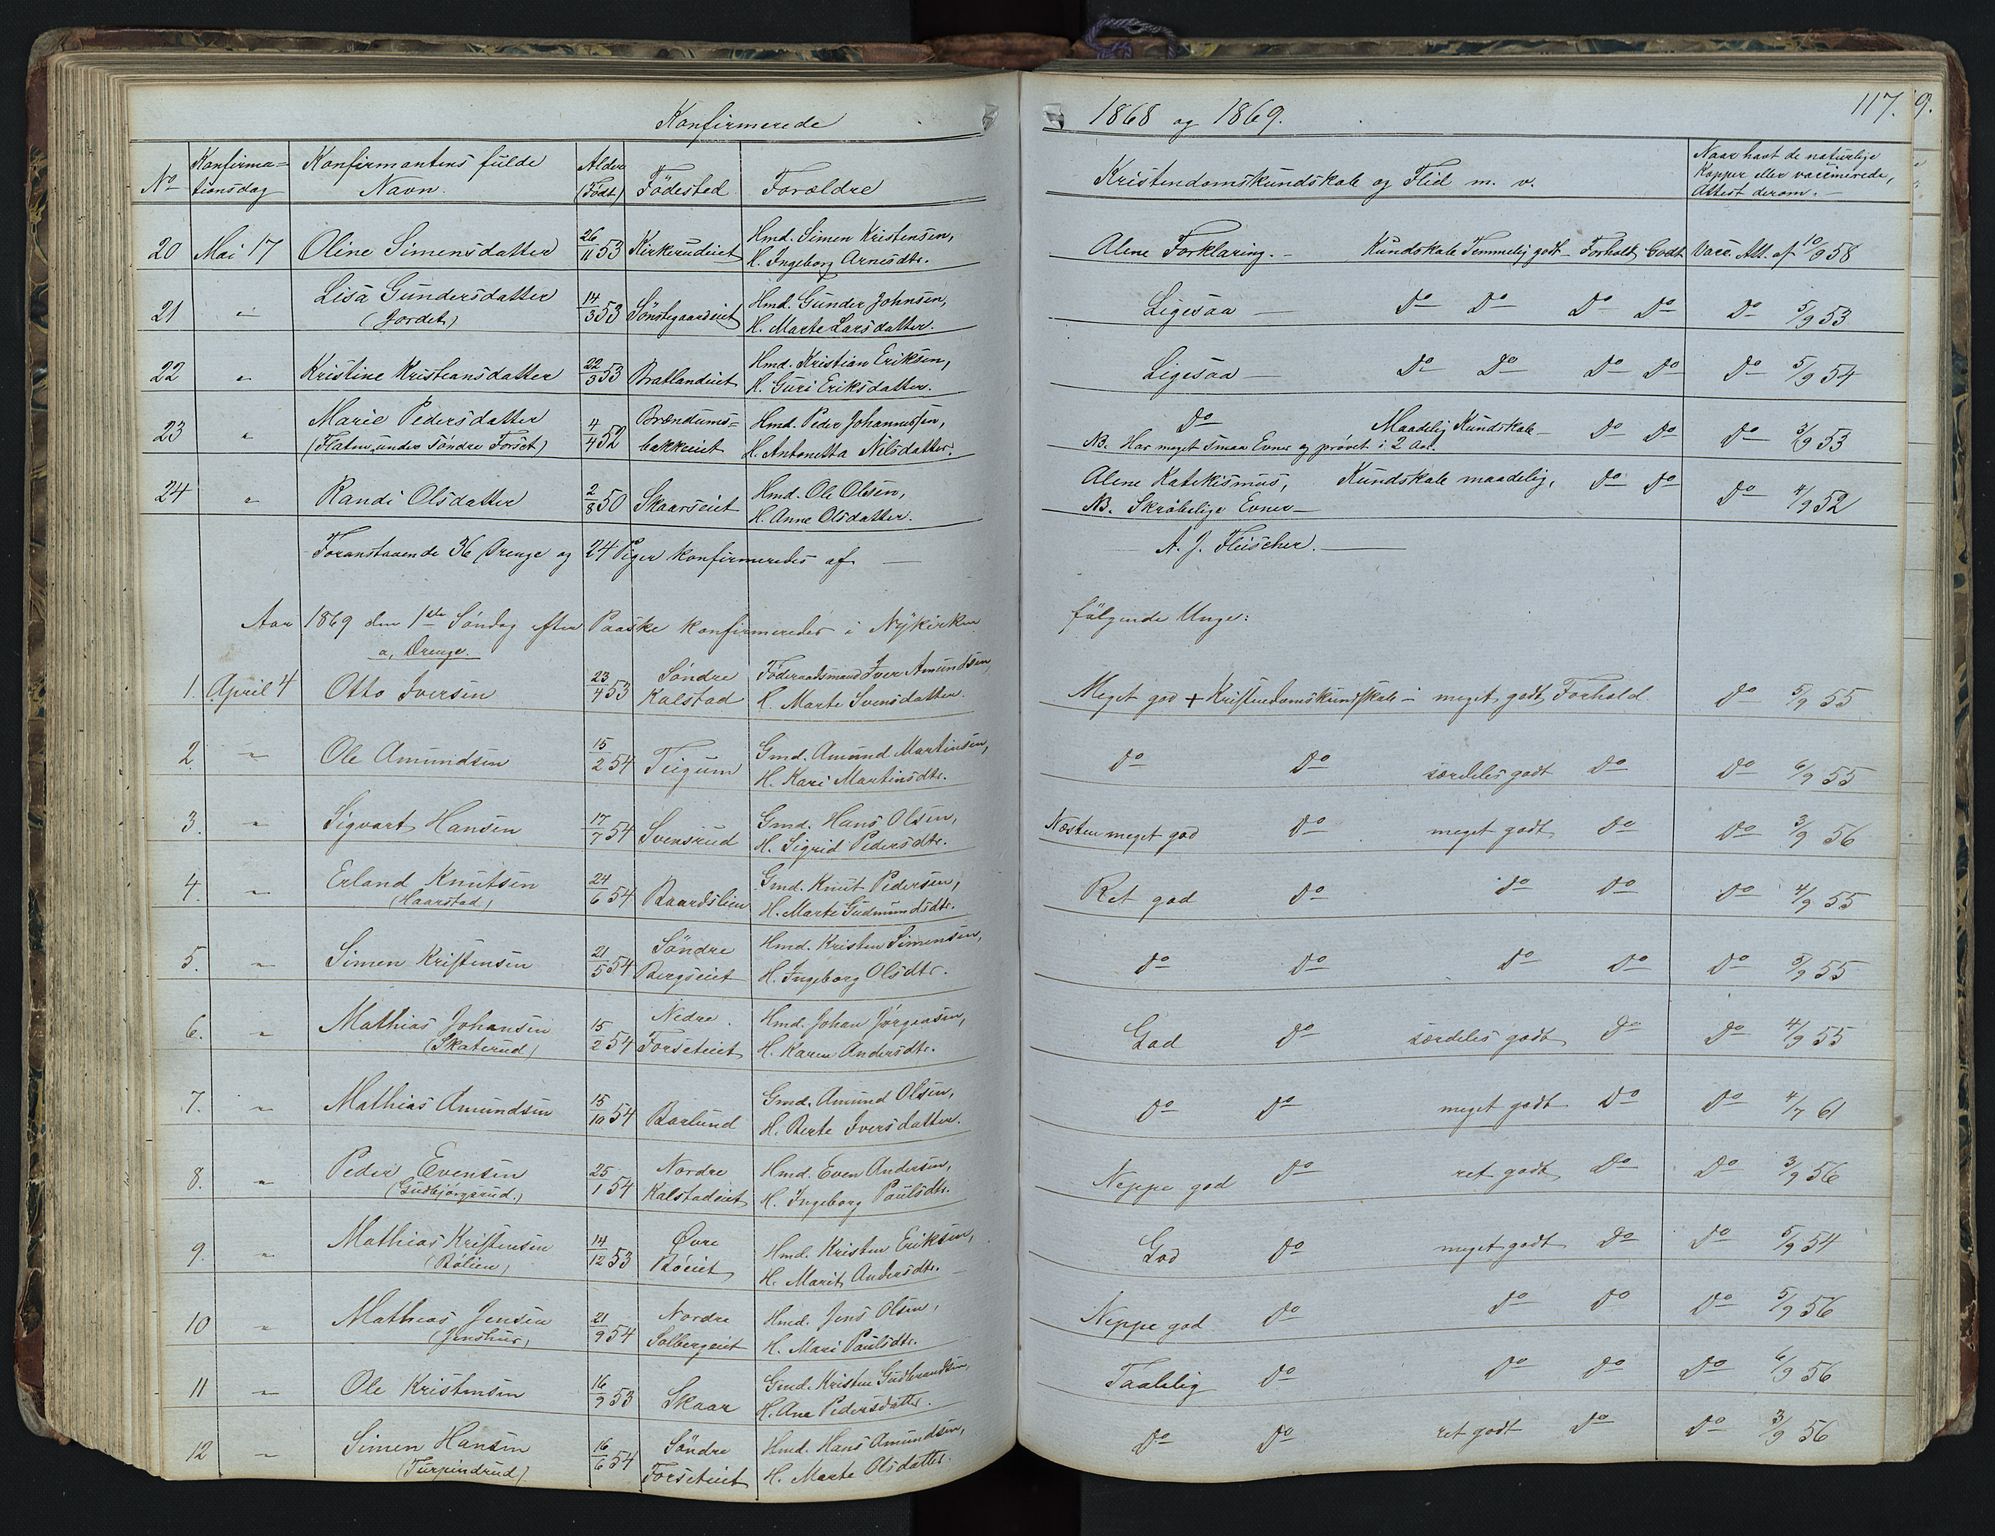 Konfirmerede 1868 og 1869. 117.
No Konfirmationsdag Konfirmantens fulde Navn. Alder (Født) Fødested Forældre Kristendomskundskab og Flid m. v. Naar havt de naturlige Kopper eller vaccinerede, Attest derom.
20 Mai 17 Oline Simensdatter 26/11 53 Kirkerudeiet Hmd. Simen Kristensen, H. Ingeborg Arnesdtr. Alene Forklaring. – Kundskab Temmelig godt – Forhold Godt Vacc. Att. af 10/9 58
21 " Lisa Gundersdatter (Jordet) 14/3 53 Sønstegaardeiet Hmd. Gunder Johnsen, H. Marte Larsdatter. Ligesaa – Do Do Do Do Do 5/9 53
22 " Kristine Kristiansdatter 22/3 53 Bratlandeiet Hmd. Kristian Eriksen, H. Guri Eriksdatter. Ligesaa – Do Do Do Do Do 5/9 54
23 " Marie Pedersdatter (Flaten under Søndre Forset) 4/4 52 Brændumsbakkeiet Hmd. Peder Johannessen, H. Antonetta Nilsdatter. Do Maadelig Kundskab – Do Do Do 3/9 53
NB. Har meget smaa Evner og prøvet i 2 Aar.
24 " Randi Olsdatter 2/8 50 Skaarseiet Hmd. Ole Olsen, H. Anne Olsdatter. Alene Katekismus, Kundskab maadelig, Do Do Do 4/9 52
NB. Skrøbelige Evner –
Foranstaaende 36 Drenge og 24 Piger konfirmeredes af – A. J. Fleischer. –
Aar 1869 den 1ste Søndag efter Paaske konfirmeredes i Nykirken følgende Unge:
a, Drenge.
1. April 4 Otto Iversen 23/4 53 Søndre Kalstad Føderaadsmand Iver Amundsen, H. Marte Svensdatter. Meget god + Kristendomskundskab – meget godt Forhold Do 5/9 55
2. " Ole Amundsen 15/2 54 Tiigum Gmd. Amund Martinsen, H. Kari Martinsdtr. Do Do særdeles godt Do Do 6/9 55
3. " Sigvart Hansen 17/7 54 Svensrud Gmd. Hans Olsen, H. Sigrid Pedersdtr. Næsten meget god Do meget godt Do Do 3/9 56
4. " Erland Knutsen (Haarstad) 24/6 54 Baardslien Gmd. Knut Pedersen, H. Marte Gudmundsdtr. Ret god Do Do Do Do 4/9 55
5. " Simen Kristensen 21/5 54 Søndre Bergseiet Hmd. Kristen Simensen, H. Ingeborg Olsdtr. Do Do Do Do Do 5/9 55
6. " Mathias Johansen (Skaterud) 15/2 54 Nedre Forseteiet Hmd. Johan Jørgensen, H. Karen Andersdtr. God Do særdeles godt Do Do 4/9 55
7. " Mathias Amundsen 15/10 54 Baarlund Gmd. Amund Olsen, H. Berte Iversdatter. Do Do meget godt Do Do 4/7 61
8. " Peder Evensen (Gudbjørgsrud.) 25/1 54 Nordre Kalstadeiet Hmd. Even Andersen, H. Ingeborg Paulsdtr. Neppe god Do ret godt Do Do 3/9 56
9. " Mathias Kristensen (Bølien) 14/12 53 Øvre Bøeiet Hmd. Kristen Eriksen, H. Marit Andersdtr. God Do meget godt Do Do 5/9 54
10 " Mathias Jensen (Jenshus) 21/9 54 Nordre Solbergeiet Hmd. Jens Olsen, H. Mari Paulsdtr. Neppe god Do Do Do Do 5/9 56
11 " Ole Kristensen 16/9 53 Skaar Gmd. Kristen Gudbrandsen, H. Ane Pedersdatter. Taalelig Do Do Do Do 6/9 56
12 " Simen Hansen (Turpindrud) 16/6 54 Søndre Forseteiet Hmd. Hans Amundsen, H. Marte Olsdatter. Do Do ret godt Do Do 3/9 56